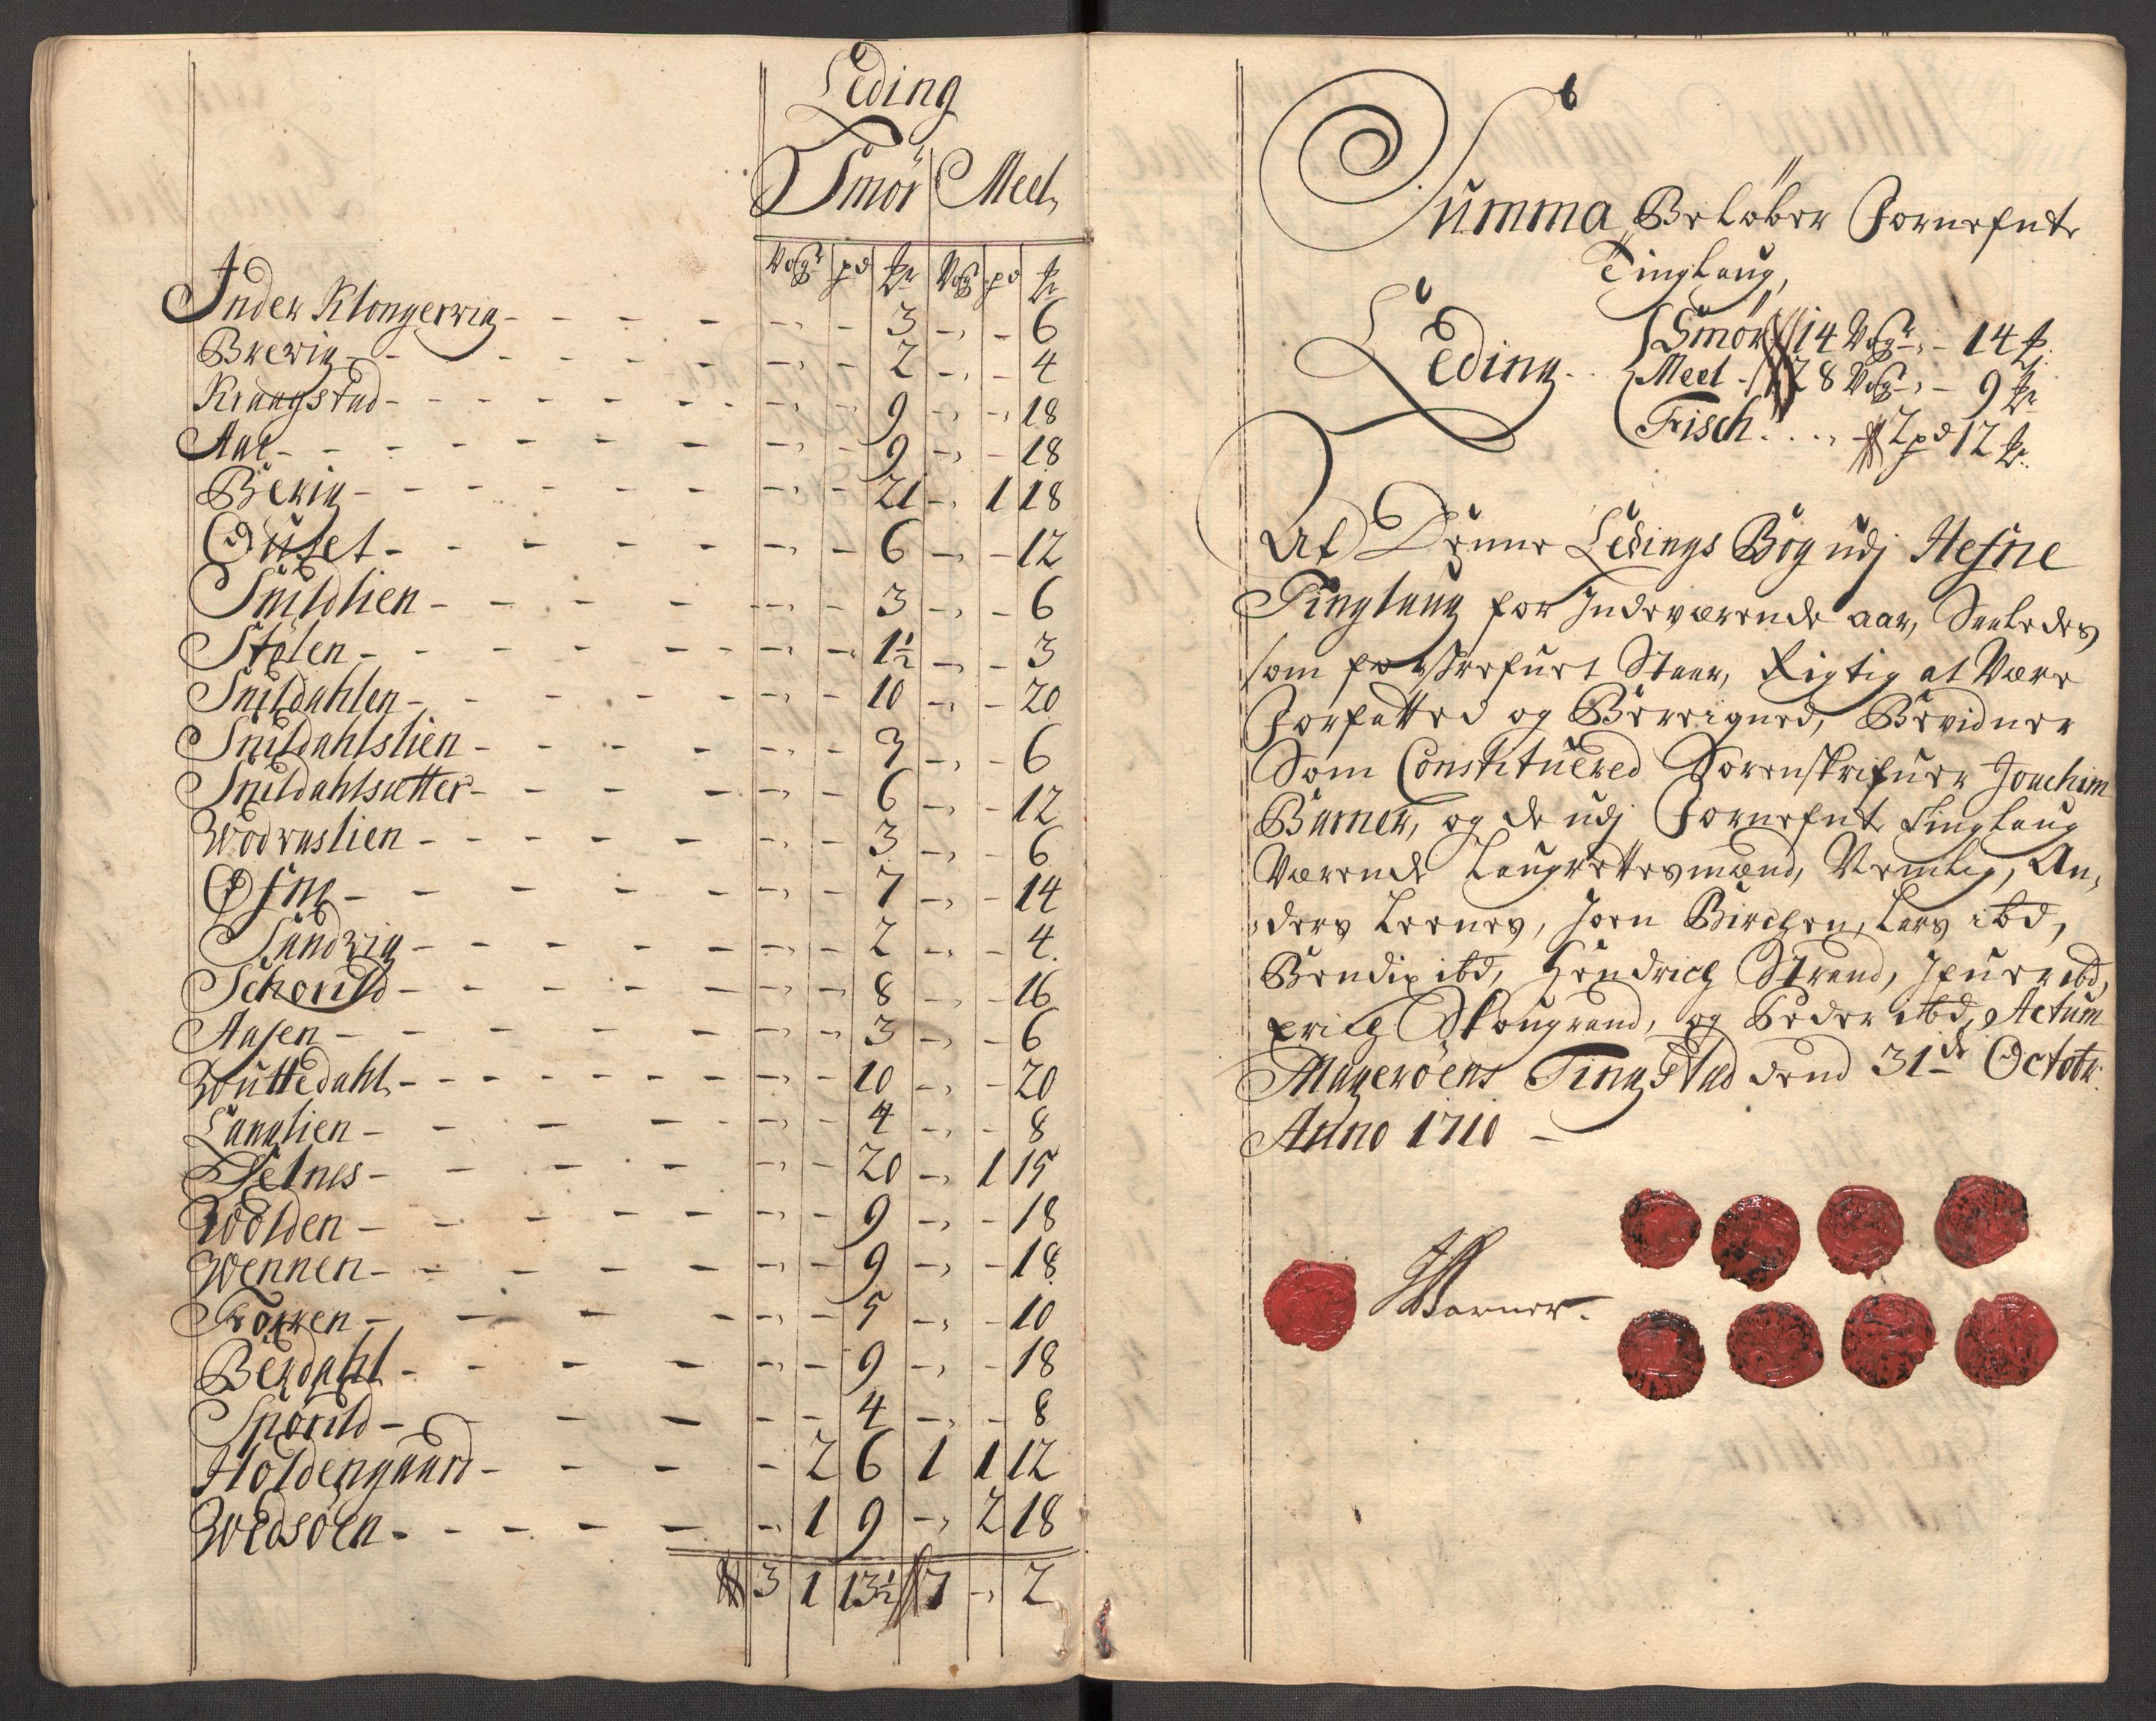 Leding
Smör Meel,
Vogr pd ℔r Vog pd ℔r
Inder Klongerwig - - - - -, - 3 -, - 6
Brewig - - - - - -, - 2 -, - 4
Kraagstad - - - - - -, - 9 -, -, 18
Aae - - - - - -, - 9 -, - 18
Berig - - - - - -, - 21 -, 1 18
Oüset - - - - - -, - 6 -, - 12
Snildlien - - - - -, - 3 -, - 6
Stölen - - - - - -, -, 1½ -, - 3
Snildahlen - - - - -, - 10 -, - 20
Snildahlslien - - - - -, - 3 -, - 6
Snildahlsætter - - - - -, - 6 -, - 12
Wodraslien - - - - -, - 3 -, - 6
Øfne - - - - - -, - 7 -, - 14
Sandwig - - - - - -, - 2 -, - 4.
Schorild - - - - - -, - 8 -, - 16
Aasen - - - - - -, - 3 -, - 6
Wuttedahl - - - - - -, - 10 -, - 20
Langlien - - - - -, - 4 -, - 8
Selnes - - - - -, - 20 -, 1 15
Wolden - - - - - -, - 9 -, - 18
Wennen - - - - - -, - 9 -, - 18
Förren - - - - -, - 5 -, - 10
Berdahl - - - - -, - 9 -, - 18
Sporild - - - - - 4 -, - 8
Holdengaard - - - - 2 6 1 1 12
Wedsöen - - - - - -, 1 9 -, 2 18
3 1 13½ 7 -, 2
Summa Beløber Fornefnte
Tinglaug,
Leding. . Smör 14 Vogr, - 14 ℔.
Meel - 28 Vog -, - 9 ℔r
Fisch . . . , 2 pd 12 ℔r.
At Denne Ledings Bog udj Hefne
Tinglaug for Indeværende aar, Saaledes
som forskrefuet Staar, Rigtig at Være
Forfatted og Bereigned, Bevidner
Som Constitüered Sorenskrifuer Joachim
Barner, og de udj Fornefnte Tinglaug
Værende Laugrettesmænd, Nemlig, An,
,ders Leernes, Joen Birchen, Lars ibd,
Bendix ibd, Hendrich Strand, Ifuer ibd,
Erich Skougrand, og Peder ibd, Actum
Mageröens TingStad dend 31de Octobr.
Anno 1710 -
JBarner.